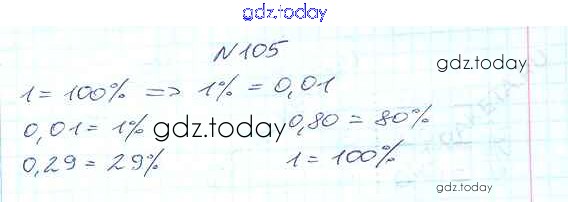 gdz.today
N 105
gdz.today
1 = 100% => 1% = 0,01
0,01 = 1% gdz.today 0,80 = 80%
0,29 = 29% 1 = 100%
gdz.today